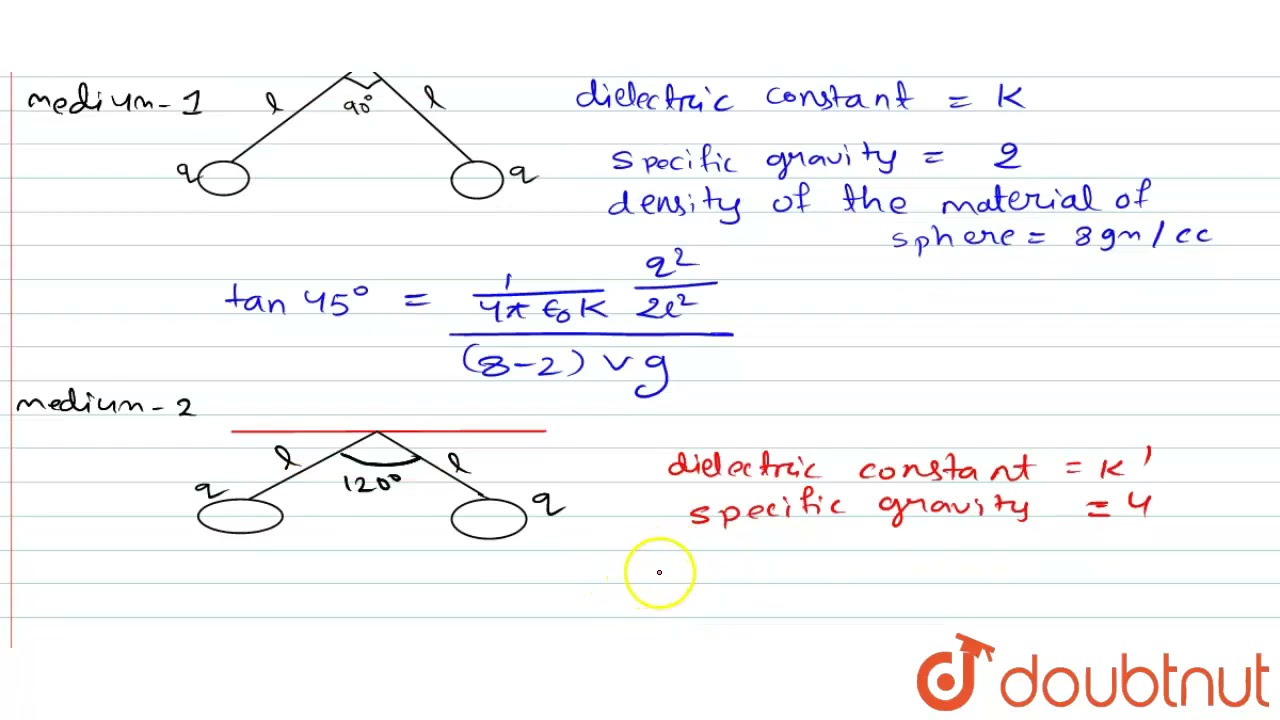 medium-1
l
90°
l
q
q
dielectric constant = K
specific gravity = 2
density of the material of
sphere = 8 gm/cc
tan 45° = 1/(4π ε₀ K) q²/(2l²) / (8-2) v g
medium-2
l
120°
l
q
q
dielectric constant = K'
specific gravity = 4
doubtnut